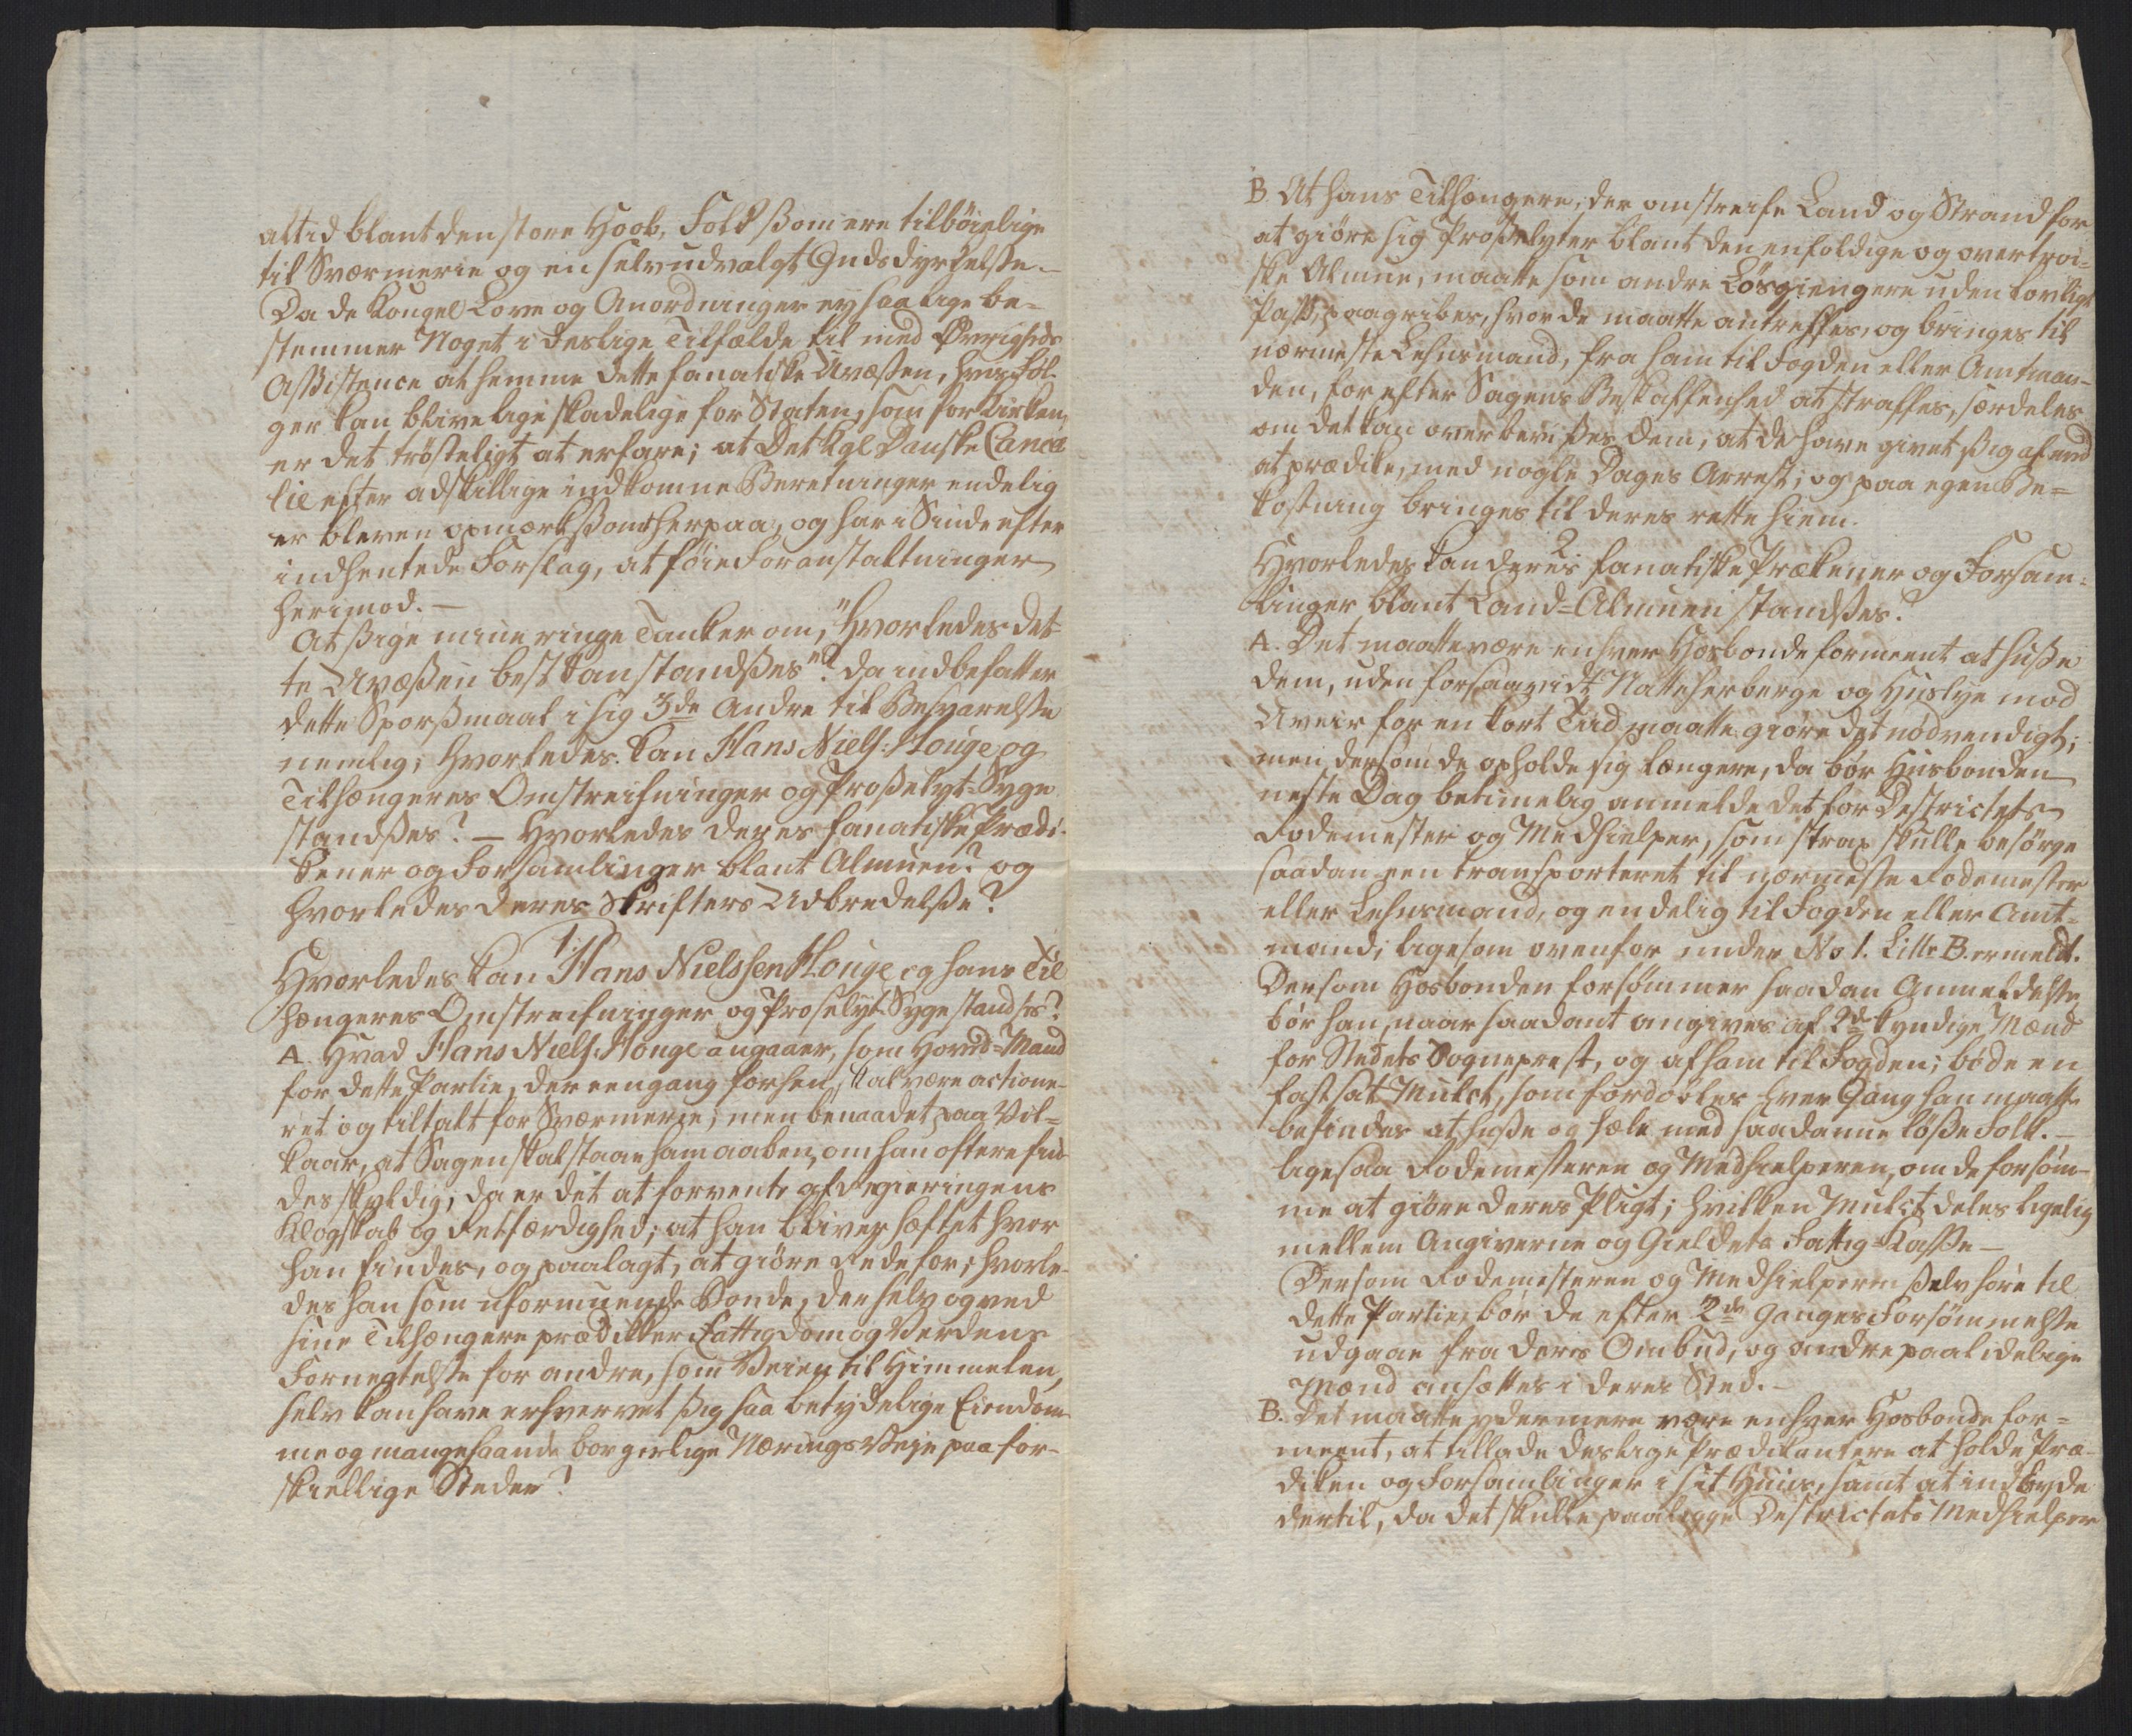 altid blant den store Hoob, Folk ßom ere tilbøielige
til Sværmerie og en selvudvalgt Gudsdyrkelße.-
Da de Kongel Love og Anordninger ey saa lige be=
stemmer Noget i deslige Tilfælde til med Øvrigheds
Aßistence at hemme dette fanatiske Uvæßen, hvis Føl-
ger kan blive lige skadelige for Staten, som for Kirken,
er det trösteligt at erfare; at Det Kgl Danske Cancel
lie efter adskillige indkomne Beretninger endelig
er bleven opmærkßom herpaa, og har i Sinde efter
indhentede Forslag, at föie Foranstaltninger
herimod.-
At ßige mine ringe Tanker om, "Hvorledes det-
te Uvæßen best kan standßes"? da indbefatter
dette Sporßmaal i sig 3de Andre til Besvarelße
nemlig; Hvorledes kan Hans Niels: Houge og
Tilhængeres Omstreifninger og Proßelyt=Syge
standßes? - Hvorledes deres fanatiske Prædi-
kener og Forsamlinger blant Almuen? og
hvorledes deres Skrifters Udbredelße?
1.
Hvorledes kan Hans Nielssen Houge og hans Til
hængeres Omstreifninger og Proselyt Syge standses?
A. Hvad Hans Niels: Houge angaaer, som Hoved=Mand
for dette Partie, der eengang forhen skal være actione-
ret og tiltalt for Sværmerie; men benaadet paa Vil=
kaar, at Sagen skal staae ham aaben, om han oftere fin
des skyldig, da er det at forvente af Regieringens
Klogskab og Retfærdighed; at han bliver hæftet hvor
han findes, og paalagt, at giöre Rede for; hvorle-
des han som uformuende Bonde, der selv og ved
sine Tilhængere prædikker Fattigdom og Verdens
Fornegtelße for andre, som Veien til Himmelen,
selv kan have erhvervet ßig saa betydelige Eiendom-
me og mangehaande borgerlige Nærings Veje paa for-
skiellige Steder?
B. At hans Tilhængere, der omstreife Land og Strand for
at giöre sig Proßelyter blant den enfoldige og overtroi=
ske Almue, maatte som andre Løsgiengere uden lovligt
Paß, paagribes, hvor de maatte antreffes, og bringes til
nærmeste Lehnsmand, fra ham til Fogden eller Amtman-
den, for efter Sagens Beskaffenhed at straffes, særdeles
om det kan overbevißes dem, at de have givet ßig af med
at prædike, med nogle Dages Arrest; og paa egen Be=
kostning bringes til deres rette Hiem.
2
Hvorledes kan deres fanatiske Prækener og Forsam=
linger blant Land=Almuen standßes?
A. Det maatte være enhver Hosbonde formeent at huße
dem, uden forsaavidt Natteherberge og Huslye mod
Uveir for en kort Tiid maatte giöre det nødvendigt;
men dersom de opholde sig længere, da bör Husbonden
neste Dag betimelig anmelde det for Destrictets
Rodemester og Medhielper, som strax skulle besörge
saadan een transporteret til nærmeste Rodemester
eller Lehnsmand, og endelig til Fogden eller Amt-
mand; ligesom ovenfor under No 1. Litle B. ermeldt.
Dersom Hosbonden forsømmer saadan Anmeldelße
bör han, naar saadant angives af 2de kyndige Mænd
for Stedets Sogneprest, og af ham til Fogden; böde en
fastsat Mulct, som fordobles hver Gang han maatte
befindes at huße og hæle med saadanne lößße Folk. -
ligesaa Rodemesteren og Medhielperen, om de forsöm-
me at giöre deres Pligt; hvilken Mulct deles ligelig
mellem Angiverne og Gieldets Fattig=Kaße -
Dersom Rodemesteren og Medhielperen ßelv höre til
dette Partie, bör de efter 2de Ganges Forsømmelße
udgaae fra deres Ombud, og andre paalidelige
Mænd ansættes i deres Sted.-
B. Det maatte ydermere være enhver Hosbonde for=
meent, at tillade deslige Prædikantere at holde Præ-
diken og Forsamlinger i sit Huus, samt at indbyde
dertil, da det skulle paaligge Destrictets Medhielper